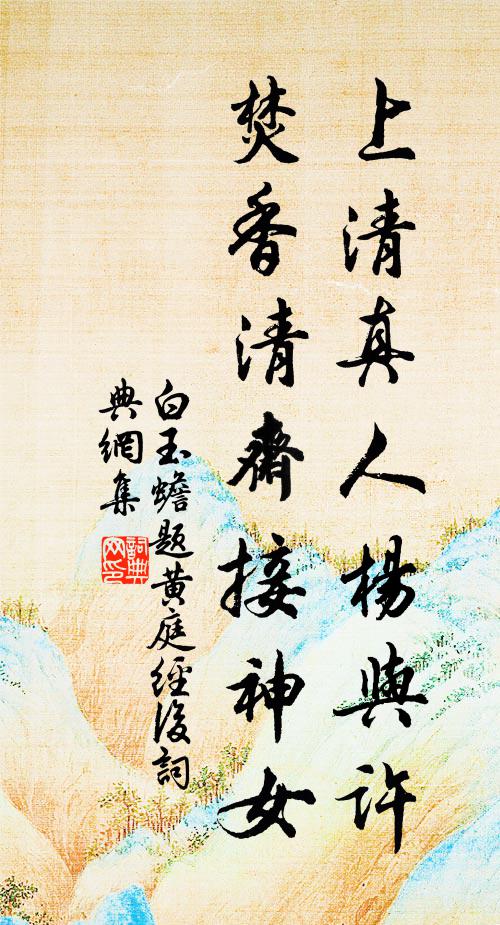 上清真人楊與許
焚香清齋接神女
白玉蟾題黃庭經後詞
典網集
詞典